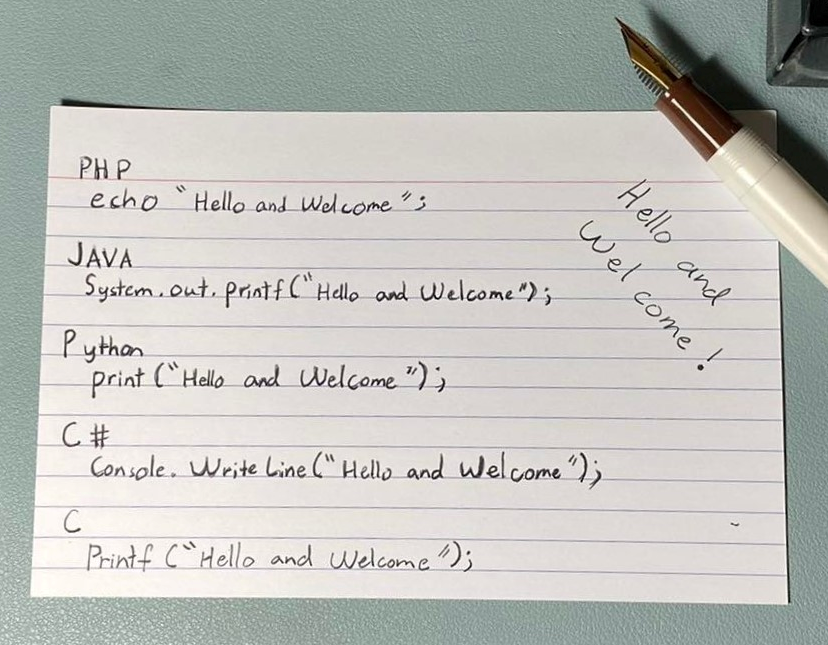 PHP
echo "Hello and Welcome";
JAVA
System.out.printf("Hello and Welcome");
Python
print ("Hello and Welcome");
C#
Console.WriteLine("Hello and Welcome");
C
Printf ("Hello and Welcome");
Hello and
Welcome!